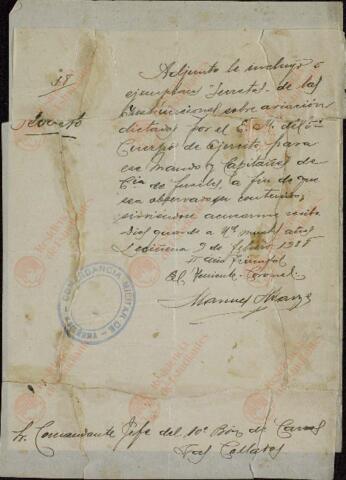 18
Secreto
Adjunto le incluyo
ejemplar secreto de las
Instrucciones sobre aviación
dictadas por el E. M. del
Cuerpo de Ejército para
ese mando y Capitanes de
Cía de fusiles, a fin de que
sea observado su contenido,
sirviéndose acusarme recibo
Dios guarde a Vd muchos años
Leciñena 9 de febrero 1938
II Año Triunfal
El Teniente Coronel
Manuel
COMANDANCIA MILITAR DE
Sr. Comandante Jefe del 10º Bón de